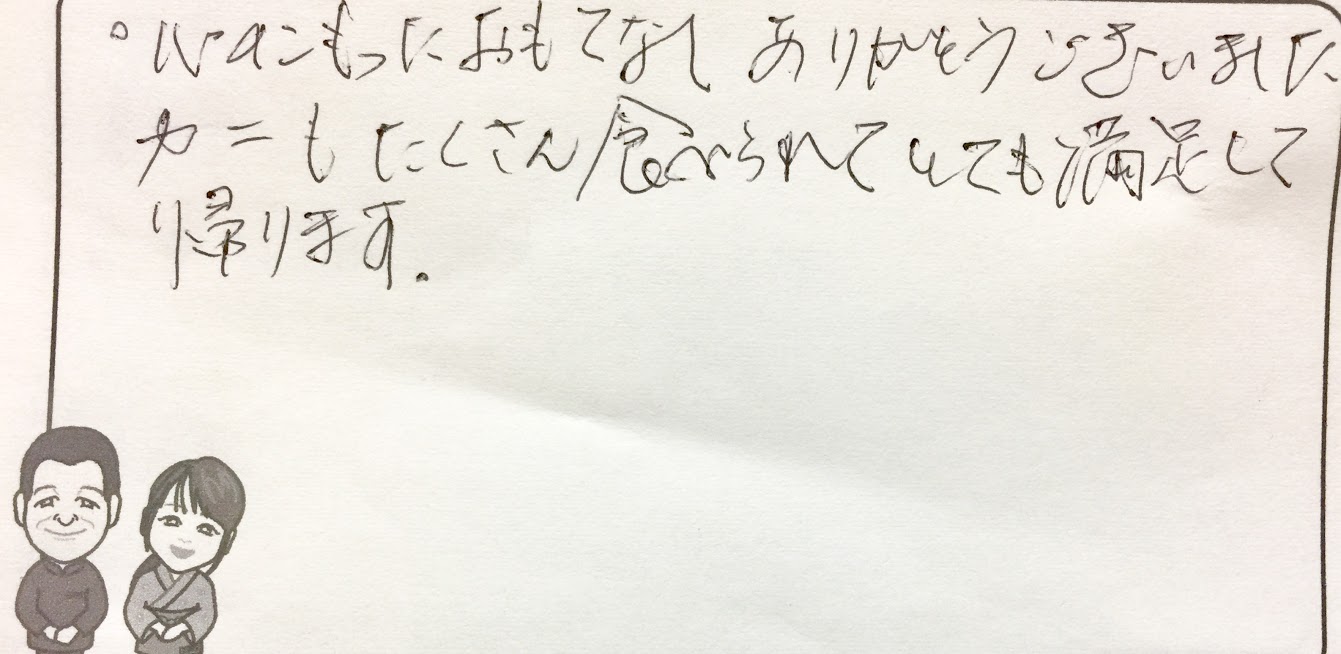 。心のこもったおもてなし ありがとうございました
カニもたくさん食べられてとても満足して
帰ります.